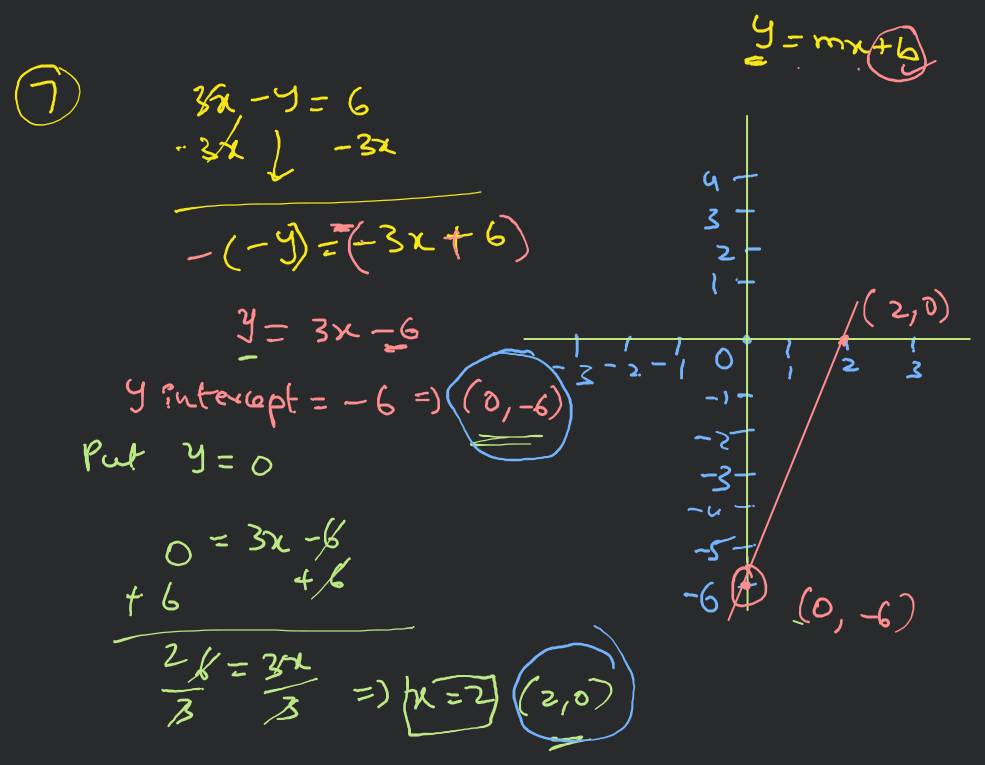 y = mx+b
7
3x - y = 6
- 3x ↓ - 3x
- (- y) = -(-3x + 6)
y = 3x - 6
y intercept = - 6 => (0, -6)
Put y = 0
0 = 3x - 6
+ 6 + 6
2 6/3 = 3x/3 => x = 2 (2,0)
4
3
2
1
(2,0)
-3 -2 -1 0 1 2 3
-1
-2
-3
-4
-5
-6 (0, -6)